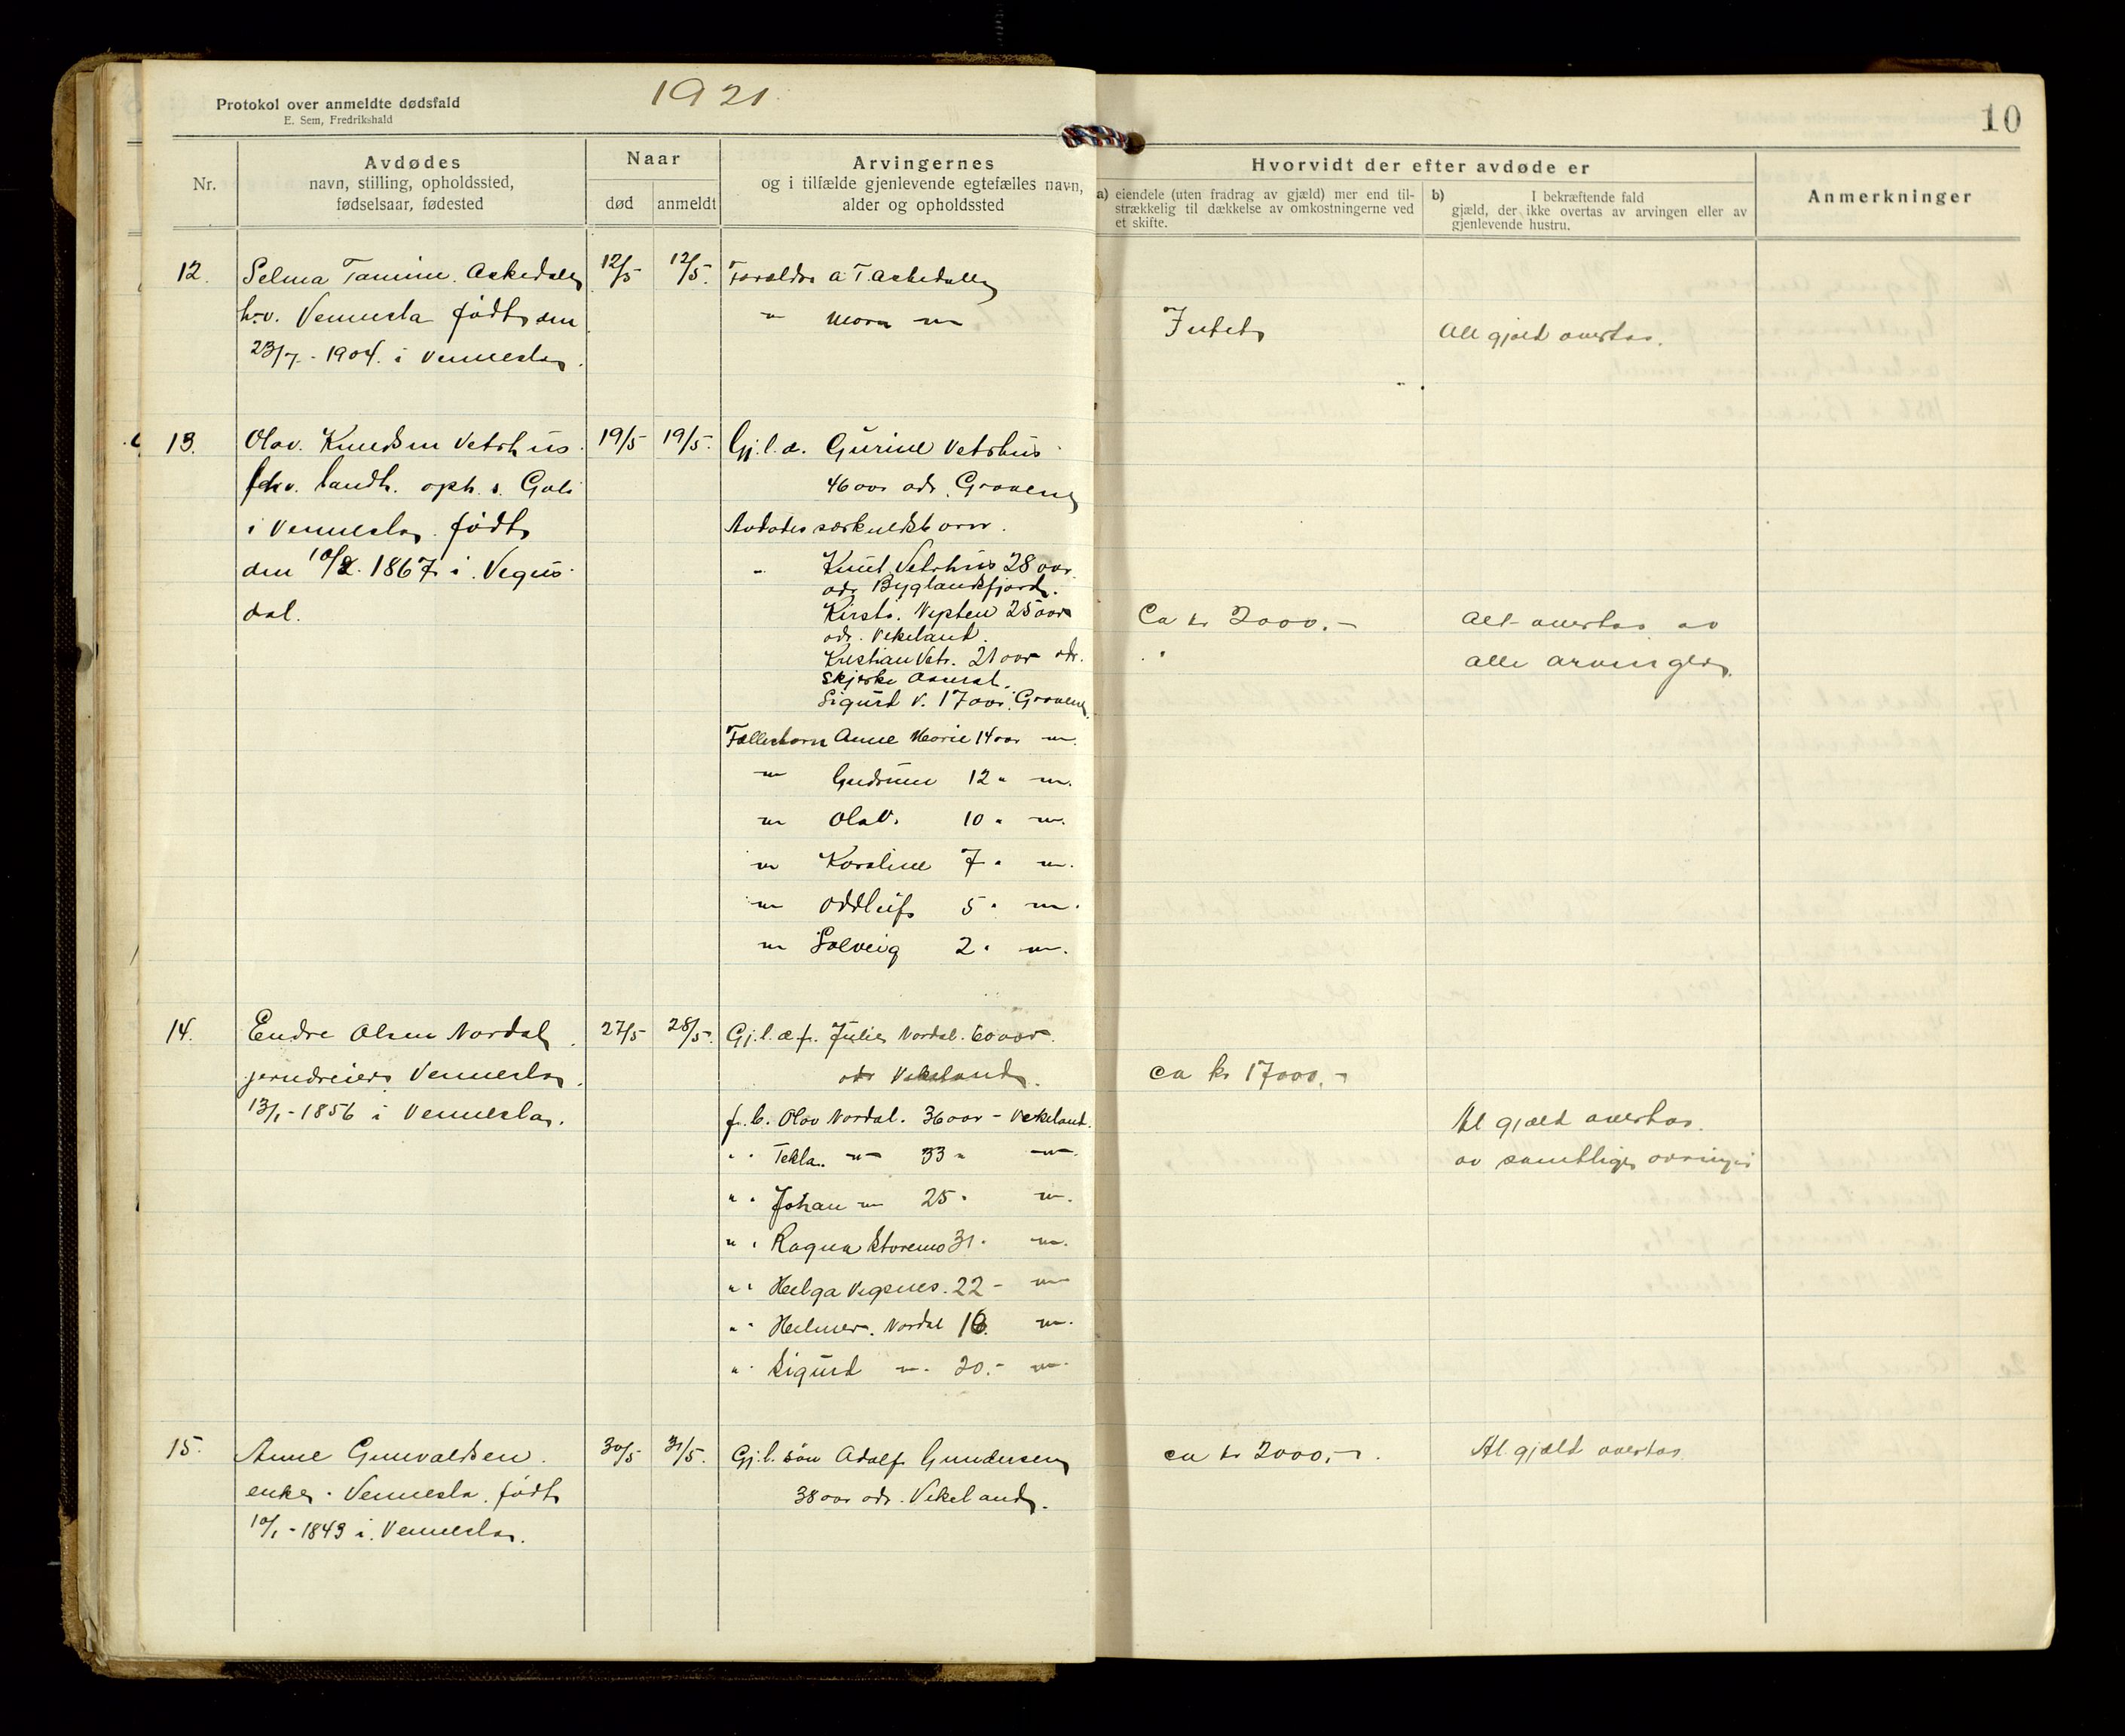 Protokol over anmeldte dødsfald
E. Sem, Fredrikshald
1921.
10
Nr.
Avdødes
navn, stilling, opholdssted,
fødselsaar, fødested
Naar
død
anmeldt
Arvingernes
og i tilfælde gjenlevende egtefælles navn,
alder og opholdssted
Hvorvidt der efter avdøde er
a) eiendele (uten fradrag av gjæld) mer end til-
strækkelig til dækkelse av omkostningerne ved
et skifte.
b) I bekræftende fald
gjæld, der ikke overtas av arvingen eller av
gjenlevende hustru.
Anmerkninger
12. Selma Tamine Askedalen 12/5 12/5. Forældre A T. Askedalen
Vennesla født den
23/7 - 1904. i Vennesla.
" Moren "
Intet
All gjæld overtas.
13. Olav Knudsen Vetrhus. 19/5 19/5. Gj. l. æ. Gurine Vetrhus
landh. oph. s.
i Vennesla. født
den 10/2. 1867 i Vegus
dal.
46 aar adr. Grovene
Avdødes særkuldsbarn.
" Knut Vetrhus 28 aar
adr. Byglandsfjord.
Kirsti 25 aar
adr. Vikeland.
Kristian Vetr. 21 aar adr.
Sigurd V. 17 aar. Grovene.
Fællesbarn Anne Marie 14 aar "
" Gudrun 12 " "
" Olav. 10 " "
" Karoline 7 " "
" Oddleif 5 " "
" Solveig 2 " "
Ca kr 2000.-
Alt overtas av
alle arvinger.
14. Endre Olsen Nordal 27/5 28/5. Gj. l. æ. f. Julie Nordal. 60 aar.
Vennesla.
13/1 - 1856 i Vennesla.
adr Vikeland.
f. b. Olav Nordal. 36 aar - Vikeland.
" " Tekla " 33 " "
" " Johan " 25 " "
" " Ragna Storemo 31 " "
" " Helga Vigenes. 22 - "
" " Helmer. Nordal "
" " Sigurd " 20.- "
ca kr 17000.-
Al gjæld overtas.
av samtlige arvinger
15. Anne Gunvaldsen. 30/5 31/5. Gj. l. søn Adolf Gundersen
enke. Vennesla. født
10/1 - 1843 i. Vennesla.
38 aar adr. Vikeland.
ca kr 2000.-
Al gjæld overtas.